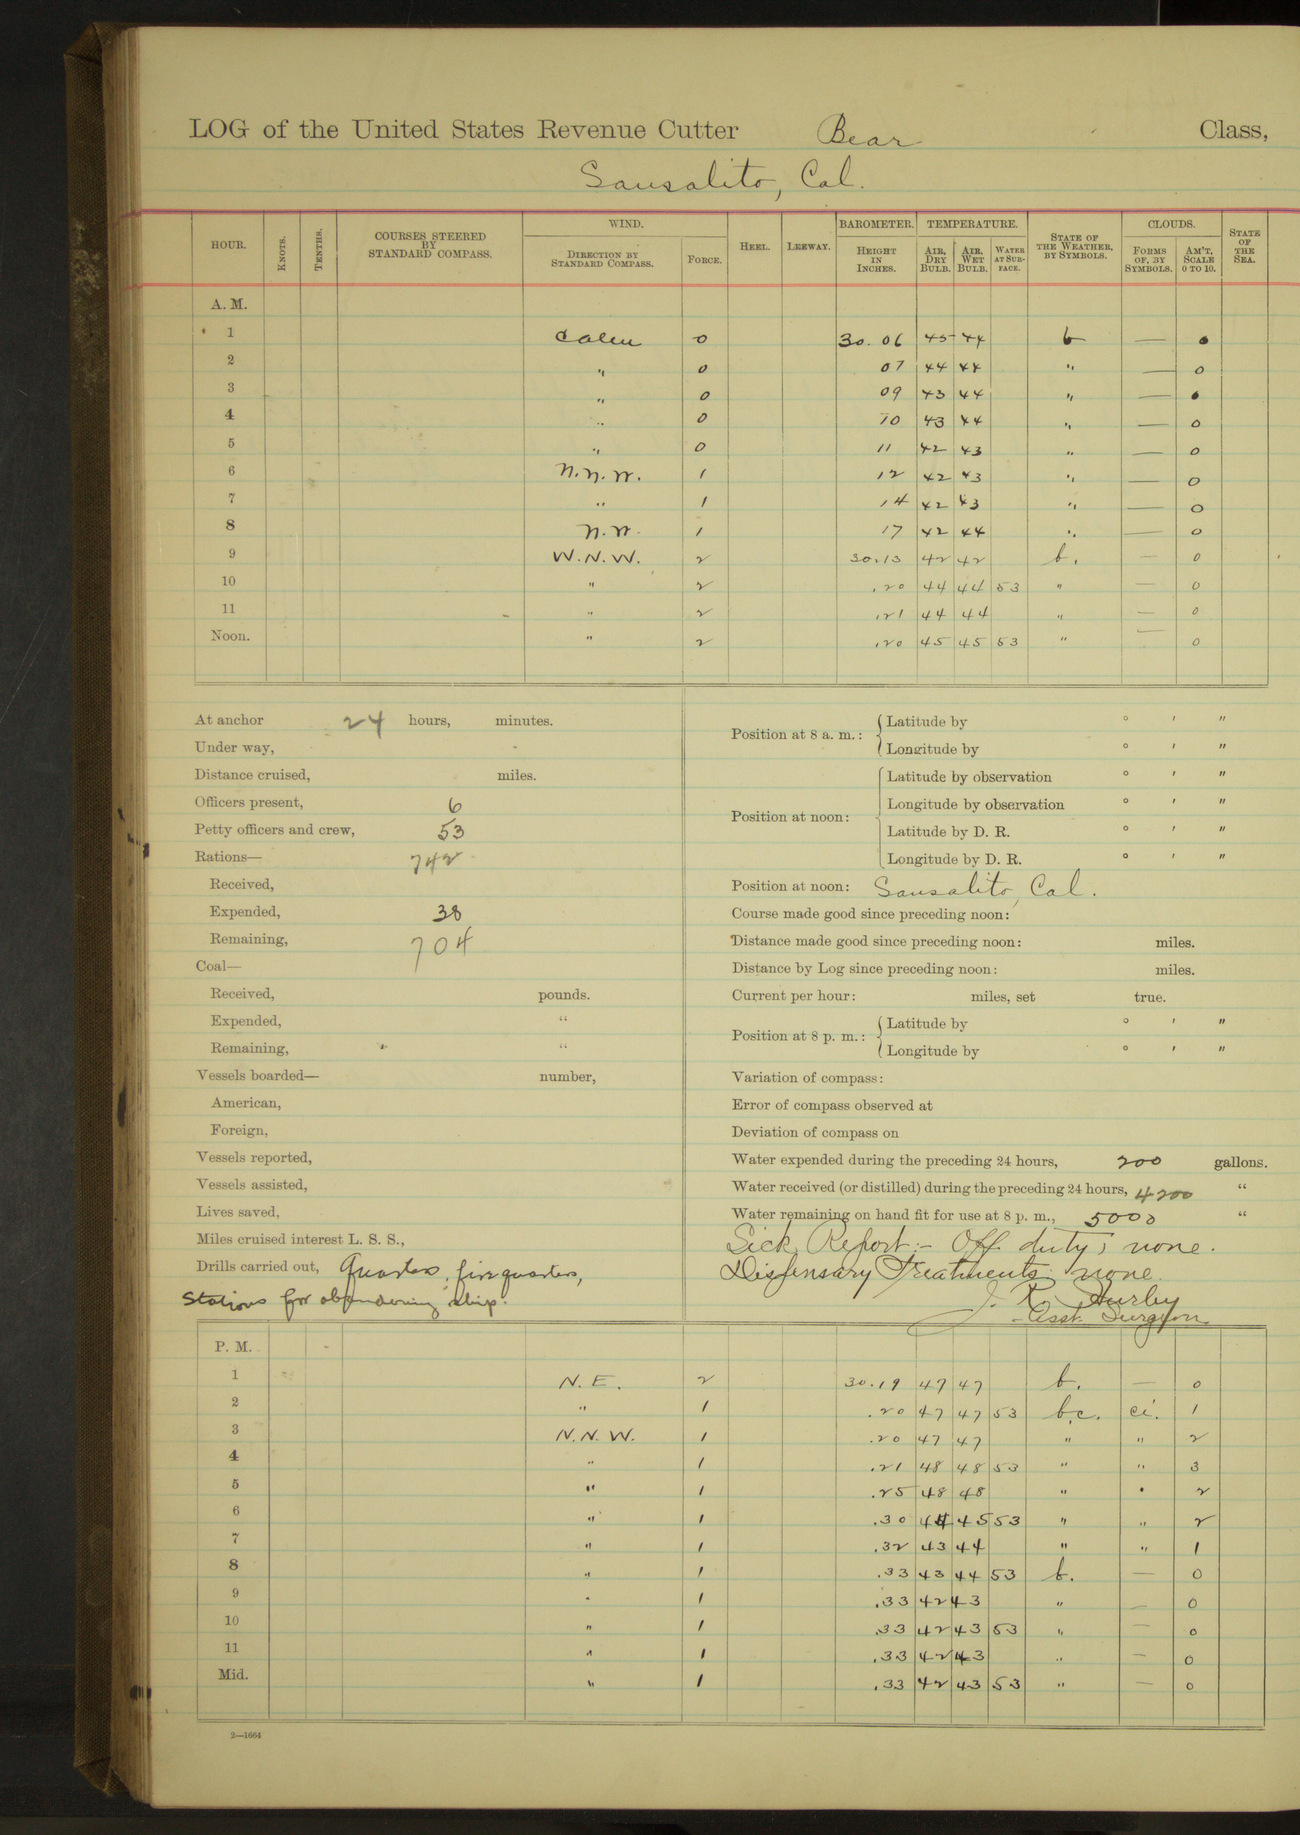 LOG of the United States Revenue Cutter Bear Class,
Sausalito, Cal.
HOUR. KNOTS. TENTHS. COURSES STEERED BY STANDARD COMPASS. WIND. DIRECTION BY STANDARD COMPASS. FORCE. HEEL. LEEWAY. BAROMETER. HEIGHT IN INCHES. TEMPERATURE. AIR, DRY BULB. AIR, WET BULB. WATER AT SURFACE. STATE OF THE WEATHER, BY SYMBOLS. CLOUDS. FORMS OF, BY SYMBOLS. AM'T, SCALE 0 TO 10. STATE OF THE SEA.
A. M.
1 Calm 0 30.06 45 44 b — 0
2 " 0 07 44 44 " — 0
3 " 0 09 43 44 " — 0
4 " 0 10 43 44 " — 0
5 " 0 11 42 43 " — 0
6 N.N.W. 1 12 42 43 " — 0
7 " 1 14 42 43 " — 0
8 N.W. 1 17 42 44 " — 0
9 W.N.W. 2 30.13 42 42 b. — 0
10 " 2 .20 44 44 53 " — 0
11 " 2 .21 44 44 " — 0
Noon. " 2 .20 45 45 53 " — 0
At anchor 24 hours, minutes.
Under way,
Distance cruised, miles.
Officers present, 6
Petty officers and crew, 53
Rations— 742
Received,
Expended, 38
Remaining, 704
Coal—
Received, pounds.
Expended, "
Remaining, " "
Vessels boarded— number,
American,
Foreign,
Vessels reported,
Vessels assisted,
Lives saved,
Miles cruised interest L. S. S.,
Drills carried out, Quarters, fire quarters,
Stations for abandoning ship.
Position at 8 a. m.: Latitude by ° ' "
Longitude by ° ' "
Position at noon: Latitude by observation ° ' "
Longitude by observation ° ' "
Latitude by D. R. ° ' "
Longitude by D. R. ° ' "
Position at noon: Sausalito, Cal.
Course made good since preceding noon:
Distance made good since preceding noon: miles.
Distance by Log since preceding noon: miles.
Current per hour: miles, set true.
Position at 8 p. m.: Latitude by ° ' "
Longitude by ° ' "
Variation of compass:
Error of compass observed at
Deviation of compass on
Water expended during the preceding 24 hours, 200 gallons.
Water received (or distilled) during the preceding 24 hours, 4200 "
Water remaining on hand fit for use at 8 p. m., 5000 "
Sick Report:- Off duty, none.
Dispensary Treatments none.
J. R. Hurley
Asst. Surgeon
P. M.
1 N.E. 2 30.19 47 47 b. — 0
2 " 1 .20 47 47 53 b.c. ci. 1
3 N.N.W. 1 .20 47 47 " " 2
4 " 1 .21 48 48 53 " " 3
5 " 1 .25 48 48 " " 2
6 " 1 .30 44 45 53 " " 2
7 " 1 .32 43 44 " " 1
8 " 1 .33 43 44 53 b. — 0
9 " 1 .33 42 43 " — 0
10 " 1 .33 42 43 53 " — 0
11 " 1 .33 42 43 " — 0
Mid. " 1 .33 42 43 53 " — 0
2—1664